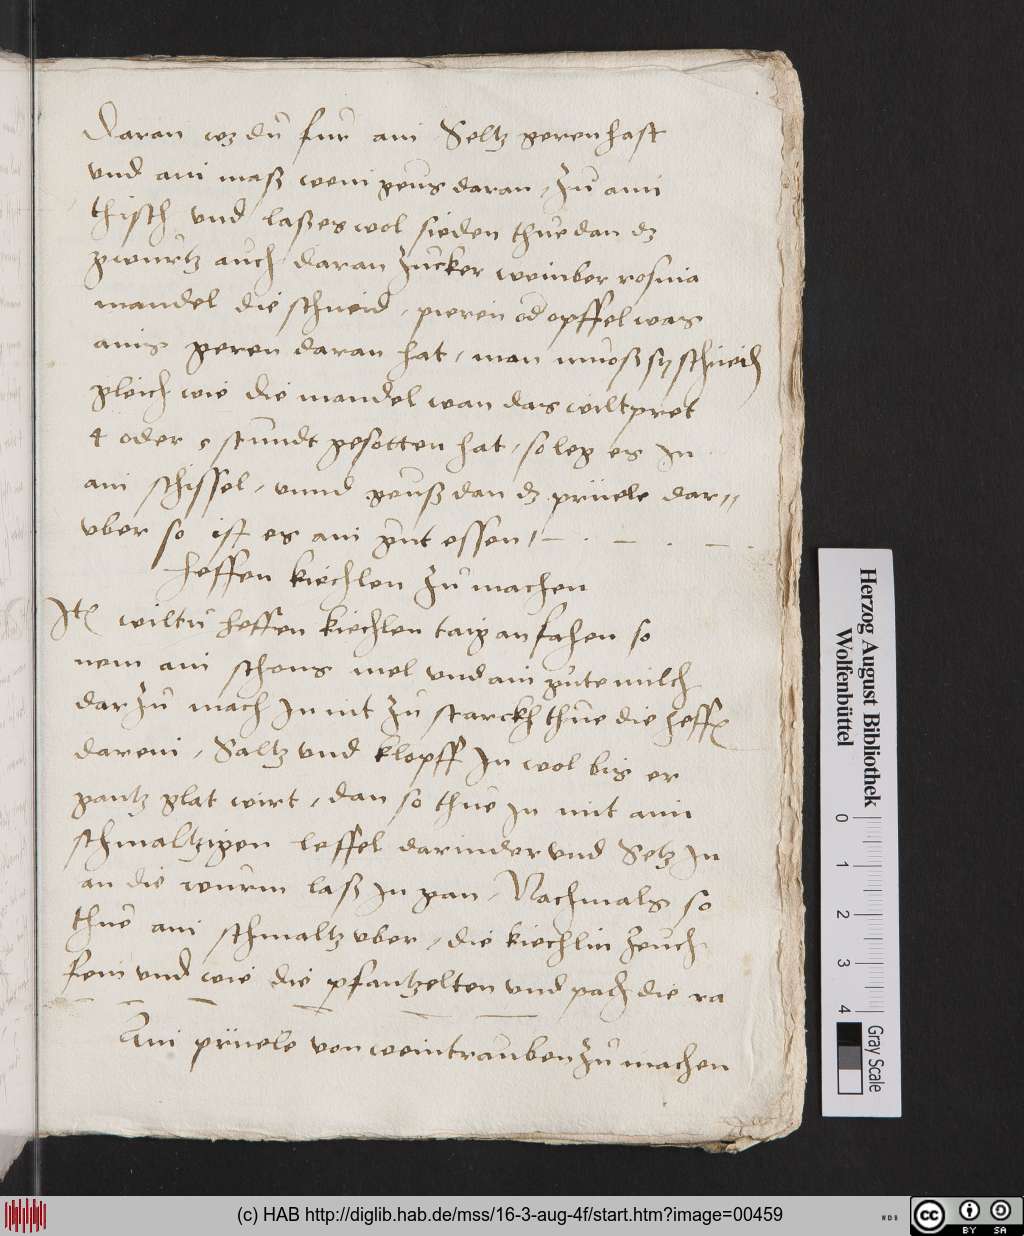 Daran wz du fur ain Seltz geren hast
vnd ain maß wein geus daran, Zu aim
thisch vnd laß es wol sieden thue dan dz
gwurtz auch daran Zucker weinber rosina
mandel die schneid, pieren od opffel was
ains geren daran hat, man muoß sy schneid
gleich wie die mandel wan das wiltpret
4 oder 5 stundt gesotten hat, so leg es In
ain schissel, vnnd geuß dan dz prüele dar=
vber so ist es ain gut essen
heffen kiechlen Zu machen
Jt wiltu heffen kiechlen taig an fahen so
nem ain schons mel vnd ain gute milch
dar Zu mach In nit Zu starckh thue die heff
darein, Saltz vnd klopff In wol bis er
gantz glat wirt, dan so thue In mit aim
schmaltzigen leffel darinder vnd Setz In
an die wurm laß In gan, Nachmals so
thue ain schmaltz vber, die kiechlin Zeuch
fein vnd wie die pfantzelten vnd pach die ra
Ain prüele von weintrauben Zu machen
Herzog August Bibliothek
Wolfenbüttel
0 1 2 3 4
Gray Scale
(c) HAB http://diglib.hab.de/mss/16-3-aug-4f/start.htm?image=00459
cc BY SA